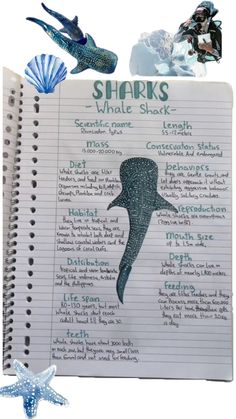 SHARKS
-Whale Shark-
Scientific name
Rhincodon typus
Length
5.5-12 metres
Mass
15,000-20,000 kg
Conservation Status
Vulnerable And endangered
Diet
Whale sharks are filter
feeders, and feed on Plankton
Organisms including krill,
and crab
Larvae.
behaviors
They are Gentle Giants, and
exhibiting aggressive behavior.
Usually Solitary Creatures
Habitat
They live in tropical and
warm temperate seas, they are
known to inhabit both deep and
shallow coastal waters and the
lagoons of coral reefs.
Reproduction
Whale Sharks are
Mouth Size
up to 1.5m wide.
Distribution
tropical and warm
and the Philippines
Depth
Whale Sharks can live in
depths of nearly 1,900 metres.
Life span
80-130 years, but most
Whale Sharks don't reach
adult hood till they are 30.
feeding
They are filter feeders and they
can Process more than 600,000
they eat more than 20 kg
a day.
teeth
Whale sharks have about 3000 teeth
and not used for feeding.